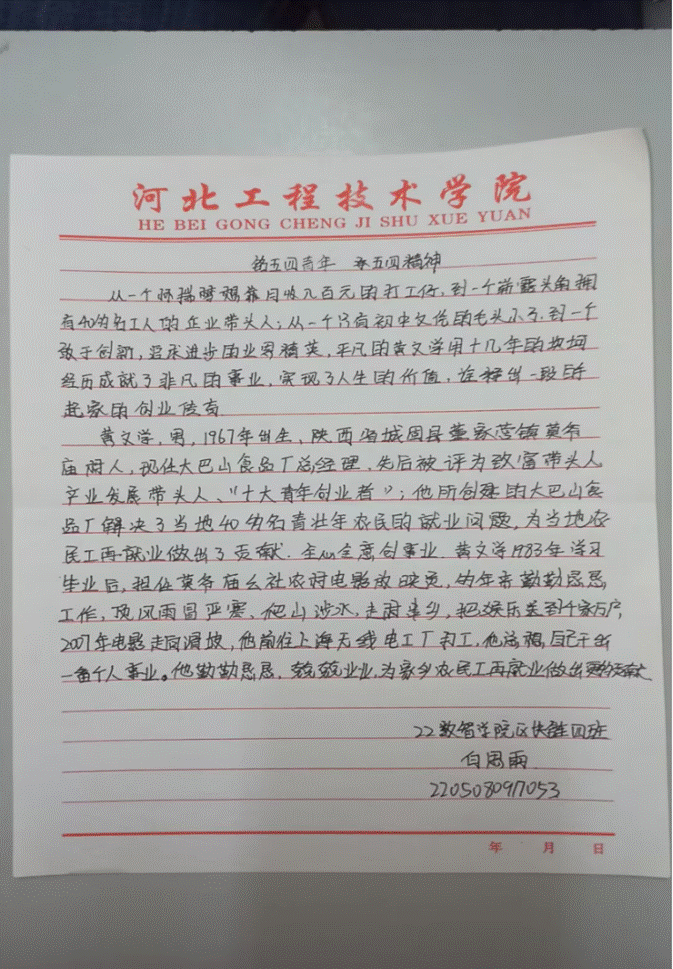 河北工程技术学院
HE BEI GONG CHENG JI SHU XUE YUAN
五四青年 五四精神
从一个怀揣梦想靠月收几百元的打工仔,到一个崭露头角拥
有40多名工人的企业带头人;从一个只有初中文化的毛头小子,到一个
敢于创新,追求进步的业界精英,平凡的黄文学用十几年的坎坷
经历成就了非凡的事业,实现了人生的价值,诠释出一段白手
起家的创业传奇
黄文学,男,1967年出生、陕西省城固县董家营镇莫爷
庙村人,现任大巴山食品厂总经理、先后被评为致富带头人
产业发展带头人、“十大青年创业者”;他所创建的大巴山食
品厂解决了当地40多名青壮年农民的就业问题,为当地农
民工再就业做出了贡献.全心全意创事业.黄文学1983年学习
毕业后,担任莫爷庙公社农村电影放映员,多年来勤勤恳恳
工作,顶风雨冒严寒、爬山涉水,走村串乡,把娱乐送到千家万户,
2007年电影走向滑坡,他前往上海无线电工厂打工,他总想,自己干出
一番个人事业。他勤勤恳恳,兢兢业业,为家乡农民工再就业做出
22数智学院区块链四班
白周雨
220508097053
年 月 日